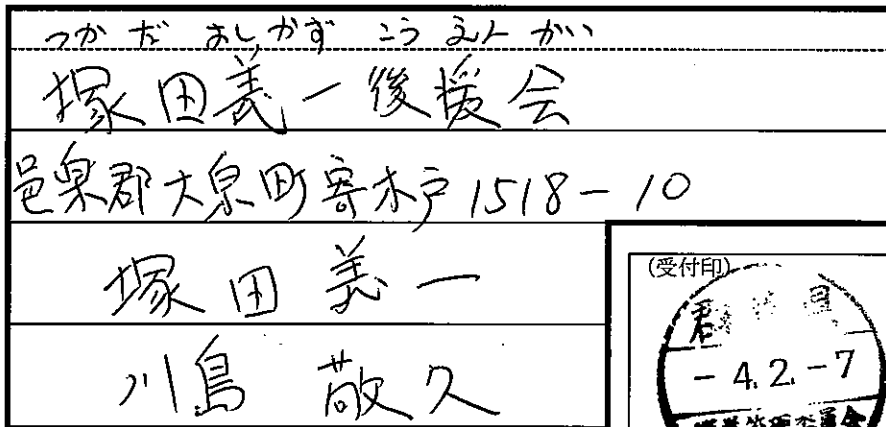 つかだ よしかず こうえんかい
塚田義一後援会
邑楽郡大泉町寄木戸1518-10
塚田義一
川島 敬久
(受付印)
群馬県
-4.2.-7
選挙管理委員会